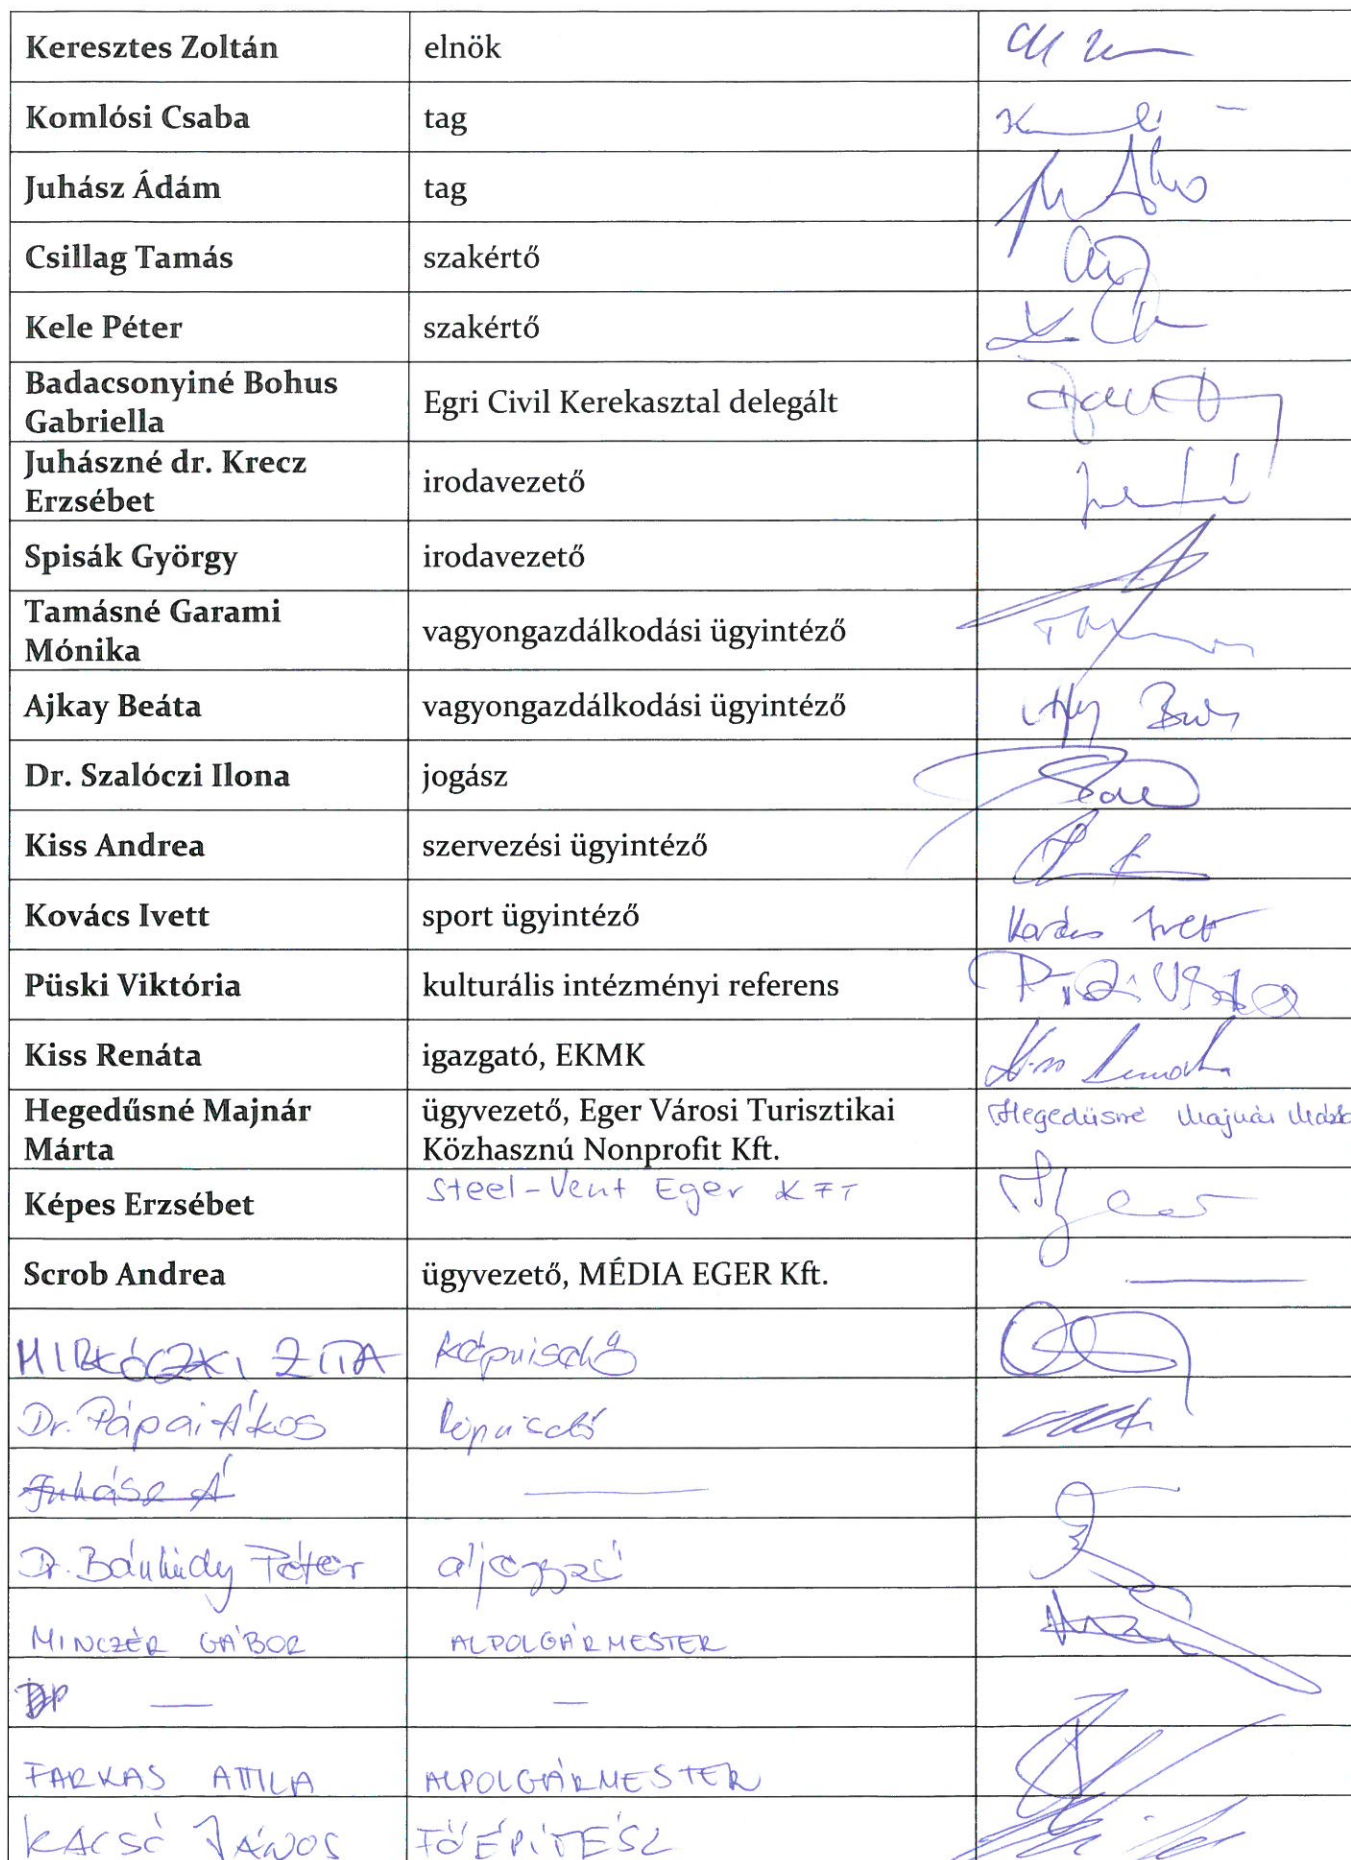 Keresztes Zoltán elnök
Komlósi Csaba tag
Juhász Ádám tag
Csillag Tamás szakértő
Kele Péter szakértő
Badacsonyiné Bohus
Gabriella Egri Civil Kerekasztal delegált
Juhászné dr. Krecz
Erzsébet irodavezető
Spisák György irodavezető
Tamásné Garami
Mónika vagyongazdálkodási ügyintéző
Ajkay Beáta vagyongazdálkodási ügyintéző
Dr. Szalóczi Ilona jogász
Kiss Andrea szervezési ügyintéző
Kovács Ivett sport ügyintéző Kovács Ivett
Püski Viktória kulturális intézményi referens
Kiss Renáta igazgató, EKMK Kiss Renáta
Hegedűsné Majnár
Márta
ügyvezető, Eger Városi Turisztikai
Közhasznú Nonprofit Kft.
Hegedűsné Majnár Márta
Képes Erzsébet Steel-Vent Eger KFT
Scrob Andrea ügyvezető, MÉDIA EGER Kft.
MIRKÓCZKI ZITA képviselő
Dr. Pápai Ákos képviselő
Juhász Á
Dr. Bánhidy Péter aljegyző
MINCZÉR GÁBOR ALPOLGÁRMESTER
FARKAS ATTILA ALPOLGÁRMESTER
KACSÓ JÁNOS FŐÉPÍTÉSZ